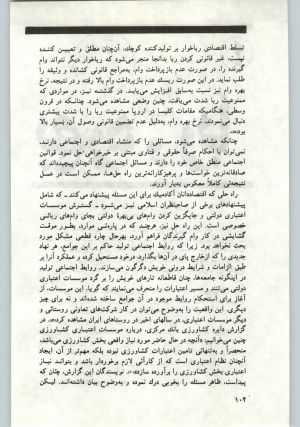 تسلط اقتصادی رباخوار بر تولیدکننده کوچک، آن‌چنان مطلق و تعیین کننده
نیست، غیر قانونی کردن ربا بدانجا منجر می‌شود که رباخوار دیگر نتواند وام
گیرنده را، در صورت عدم بازپرداخت وام، به‌مراجع قانونی کشانده و وثیقه را
طلب نماید. در این صورت ریسک عدم بازپرداخت وام بالا رفته و در نتیجه، نرخ
بهره وام نیز نسبت به‌سابق افزایش می‌یابد. در گذشته نیز، در مواردی که
ممنوعیت ربا شدت می‌یافت، چنین وضعی مشاهده می‌شود. چنانکه در قرون
وسطی، هنگامیکه مقامات کلیسا در اروپا ممنوعیت ربا را با شدت بیشتری
دنبال می‌نمودند، نرخ بهره وام، به‌دلیل عدم تضمین قانونی وصول آن، بسیار بالا
بوده».
چنانکه مشاهده می‌شود، مسائلی را که منشاء اقتصادی و اجتماعی دارند،
نمی‌توان با احکام صرفاً حقوقی و رفتاری مبتنی بر خیرخواهی حل نمود. قوانین
اجتماعی منطق خاص خود را دارند و مسائل اجتماعی گاه آنچنان پیچیده‌اند که
صادقانه‌ترین خواست‌ها و پرهیزکارانه‌ترین راه حل‌ها، ممکن است در عمل
نتیجه‌ئی کاملاً معکوس به‌بار آورند.
راه حلی که اقتصاددانان آکادمیک برای این مسئله پیشنهاد می‌کنند – که شامل
پیشنهادهای برخی از صاحبنظران اسلامی نیز می‌شود – گسترش موسسات
اعتباری دولتی و جایگزین کردن وام‌های بی‌بهرهٔ دولتی بجای وام‌های ربائی
خصوصی است. این راه حل نیز، هرچند که در پاره‌ئی موارد، بطور موقت
گشایشی در کار وام گیرندگان فراهم آورد، بهرحال چاره قطعی مشکل مورد
بحث نخواهد بود. زیرا که روابط اجتماعی تولید حاکم بر این جوامع، هر نهاد
جدیدی را که ازخارج پای در آن‌ها بگذارد، درخود مستحیل کرده و عملکرد آنرا بر
طبق الزامات و شرایط درونی خویش دگرگون می‌سازند. روابط اجتماعی تولید
در اینگونه جامعه‌ها، چنان قاطعانه تارهای خویش را بر گرد موسسات اعتباری
دولتی می‌تنند و مسیر اعتبارات را منحرف می‌نمایند که گویا، این موسسات، از
آغاز برای استحکام روابط موجود در آن جوامع ساخته شده‌اند و نه برای چیز
دیگری. این واقعیت را به‌وضوح می‌توان در کار شرکت‌های تعاونی روستائی و
دیگر موسسات اعتباری، در سالهای اخیر در روستاهای ایران مشاهده کرد».. در
گزارش دایره کشاورزی بانک مرکزی، درباره موسسات اعتباری کشاورزی
چنین می‌خوانیم: «آنچه در حال حاضر مورد نیاز واقعی بخش کشاورزی می‌باشد،
منحصراً و به‌تنهائی تامین اعتبارات کشاورزی نبوده بلکه مهم‌تر از آن، ایجاد
آنچنان نظام اعتباری است که از کارآئی لازم برخوردار باشد و بتواند نیاز
اعتباری بخش کشاورزی را برآورده سازد»... نویسندگان این گزارش، چنان که
پیداست، ظاهر مسئله را بخوبی درک نموده و به‌وضوح بیان داشته‌اند. لیکن
۱۰۴